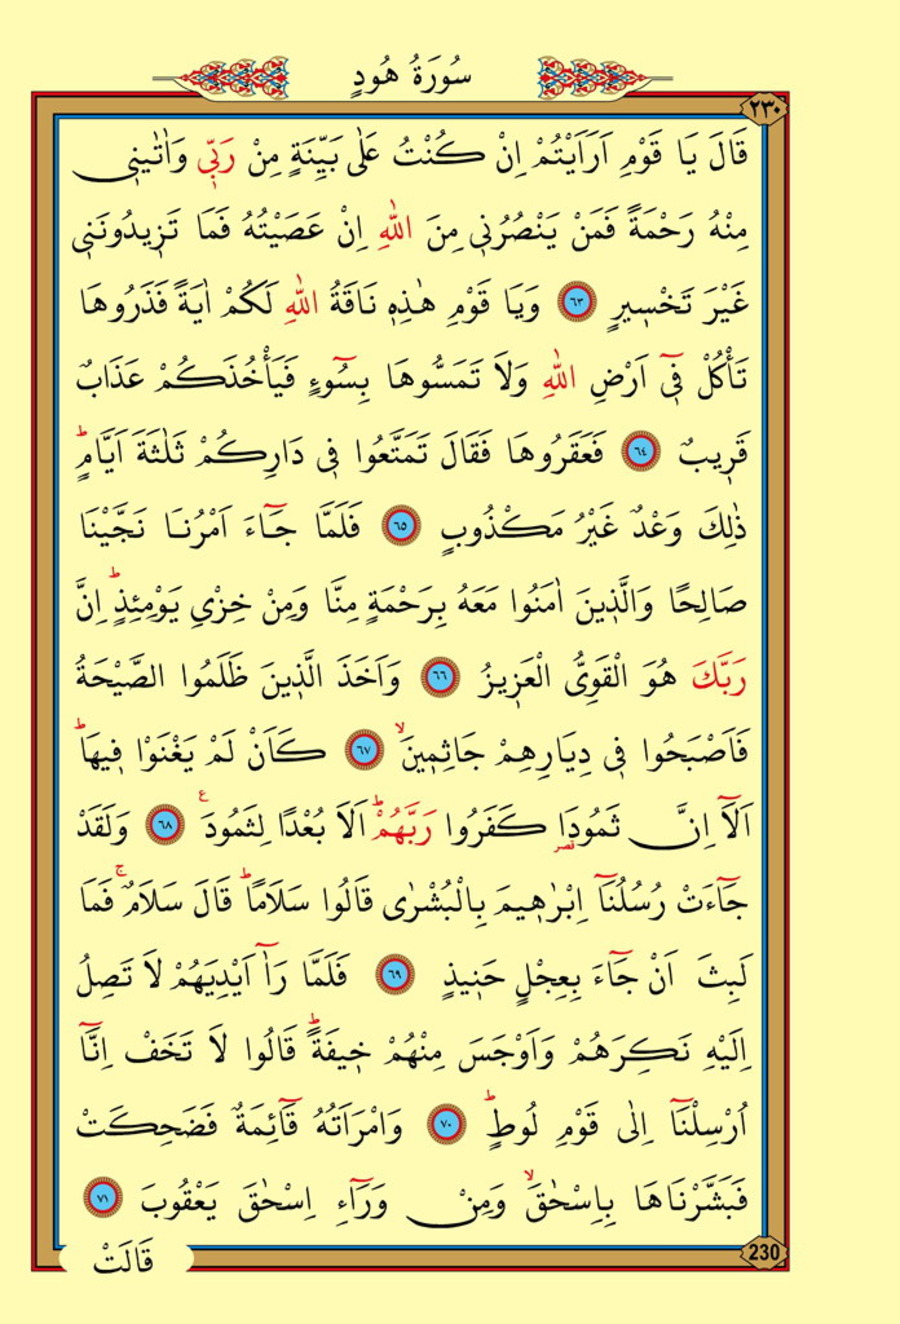 سُورَةُ هُودٍ
٢٣٠
قَالَ يَا قَوْمِ اَرَاَيْتُمْ اِنْ كُنْتُ عَلٰى بَيِّنَةٍ مِنْ رَبّٖى وَاٰتٰينٖى
مِنْهُ رَحْمَةً فَمَنْ يَنْصُرُنٖى مِنَ اللّٰهِ اِنْ عَصَيْتُهُ فَمَا تَزٖيدُونَنٖى
غَيْرَ تَخْسٖيرٍ ٦٣ وَيَا قَوْمِ هٰذِهٖ نَاقَةُ اللّٰهِ لَكُمْ اٰيَةً فَذَرُوهَا
تَأْكُلْ فٖٓى اَرْضِ اللّٰهِ وَلَا تَمَسُّوهَا بِسُٓوءٍ فَيَأْخُذَكُمْ عَذَابٌ
قَرٖيبٌ ٦٤ فَعَقَرُوهَا فَقَالَ تَمَتَّعُوا فٖى دَارِكُمْ ثَلٰثَةَ اَيَّامٍۜ
ذٰلِكَ وَعْدٌ غَيْرُ مَكْذُوبٍ ٦٥ فَلَمَّا جَٓاءَ اَمْرُنَا نَجَّيْنَا
صَالِحًا وَالَّذٖينَ اٰمَنُوا مَعَهُ بِرَحْمَةٍ مِنَّا وَمِنْ خِزْىِ يَوْمِئِذٍۜ اِنَّ
رَبَّكَ هُوَ الْقَوِىُّ الْعَزٖيزُ ٦٦ وَاَخَذَ الَّذٖينَ ظَلَمُوا الصَّيْحَةُ
فَاَصْبَحُوا فٖى دِيَارِهِمْ جَاثِمٖينَۙ ٦٧ كَاَنْ لَمْ يَغْنَوْا فٖيهَاۜ
اَلَٓا اِنَّ ثَمُودَا۬ قصر كَفَرُوا رَبَّهُمْۜ اَلَا بُعْدًا لِثَمُودَ ع ٦٨ وَلَقَدْ
جَٓاءَتْ رُسُلُنَٓا اِبْرٰهٖيمَ بِالْبُشْرٰى قَالُوا سَلَامًاۜ قَالَ سَلَامٌۚ فَمَا
لَبِثَ اَنْ جَٓاءَ بِعِجْلٍ حَنٖيذٍ ٦٩ فَلَمَّا رَآٰ اَيْدِيَهُمْ لَا تَصِلُ
اِلَيْهِ نَكِرَهُمْ وَاَوْجَسَ مِنْهُمْ خٖيفَةًۜ قَالُوا لَا تَخَفْ اِنَّٓا
اُرْسِلْنَٓا اِلٰى قَوْمِ لُوطٍۜ ٧٠ وَامْرَاَتُهُ قَٓائِمَةٌ فَضَحِكَتْ
فَبَشَّرْنَاهَا بِاِسْحٰقَۙ وَمِنْ وَرَٓاءِ اِسْحٰقَ يَعْقُوبَ ٧١
قَالَتْ
230